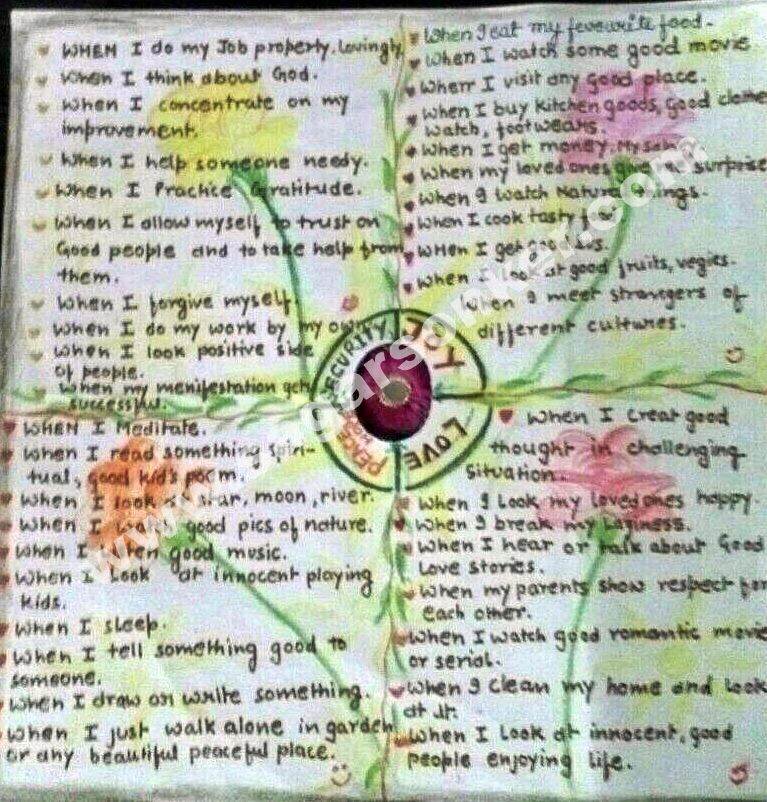 WHEN I do my Job property, Lovingly
When I think about God.
When I concentrate on my
improvement.
When I help someone needy.
When I Practice Gratitude.
When I allow myself to trust on
Good people and to take help from
them.
When I forgive myself.
When I do my work by my own
When I look positive side
of people.
When my menifestation gets
successful.
When I eat my favourite food.
When I watch some good movie
When I visit any good place.
When I buy kitchen goods, good clothes
watch, footwears.
When I get money.
When my loved ones give surprise
When I watch Nature
When I cook tasty
WHen I get
When I look at good fruits, vegies.
When I meet strangers of
different cultures.
SECURITY
JOY
PEACE
LOVE
WHEN I Meditate.
When I read something Spiri-
tual, good kid's poem.
When I look star, moon, river.
When I good pics of nature.
When I listen good music.
When I Look at innocent playing
kids.
When I sleep.
When I tell something good to
someone.
When I draw or write something.
When I just walk alone in garden
or any beautiful peaceful place..
When I Creat good
thought in challenging
Situation.
When I Look my loved ones happy.
When I break my laziness.
When I hear or talk about Good
Love stories.
When my parents show respect for
each other.
When I watch good romantic movie
or serial.
When I clean my home and look
at it.
When I Look at innocent, good
people enjoying life.